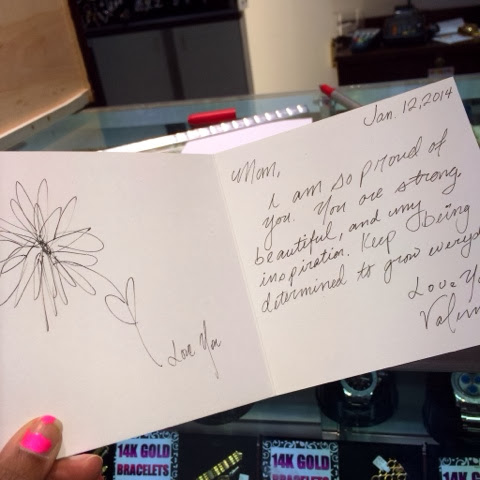 Jan. 12, 2014
Mom,
I am so proud of
you. You are strong,
beautiful, and my
inspiration. Keep being
determined to grow
Love
Love You
14K GOLD
BRACELETS
14K GOLD
BRACELETS